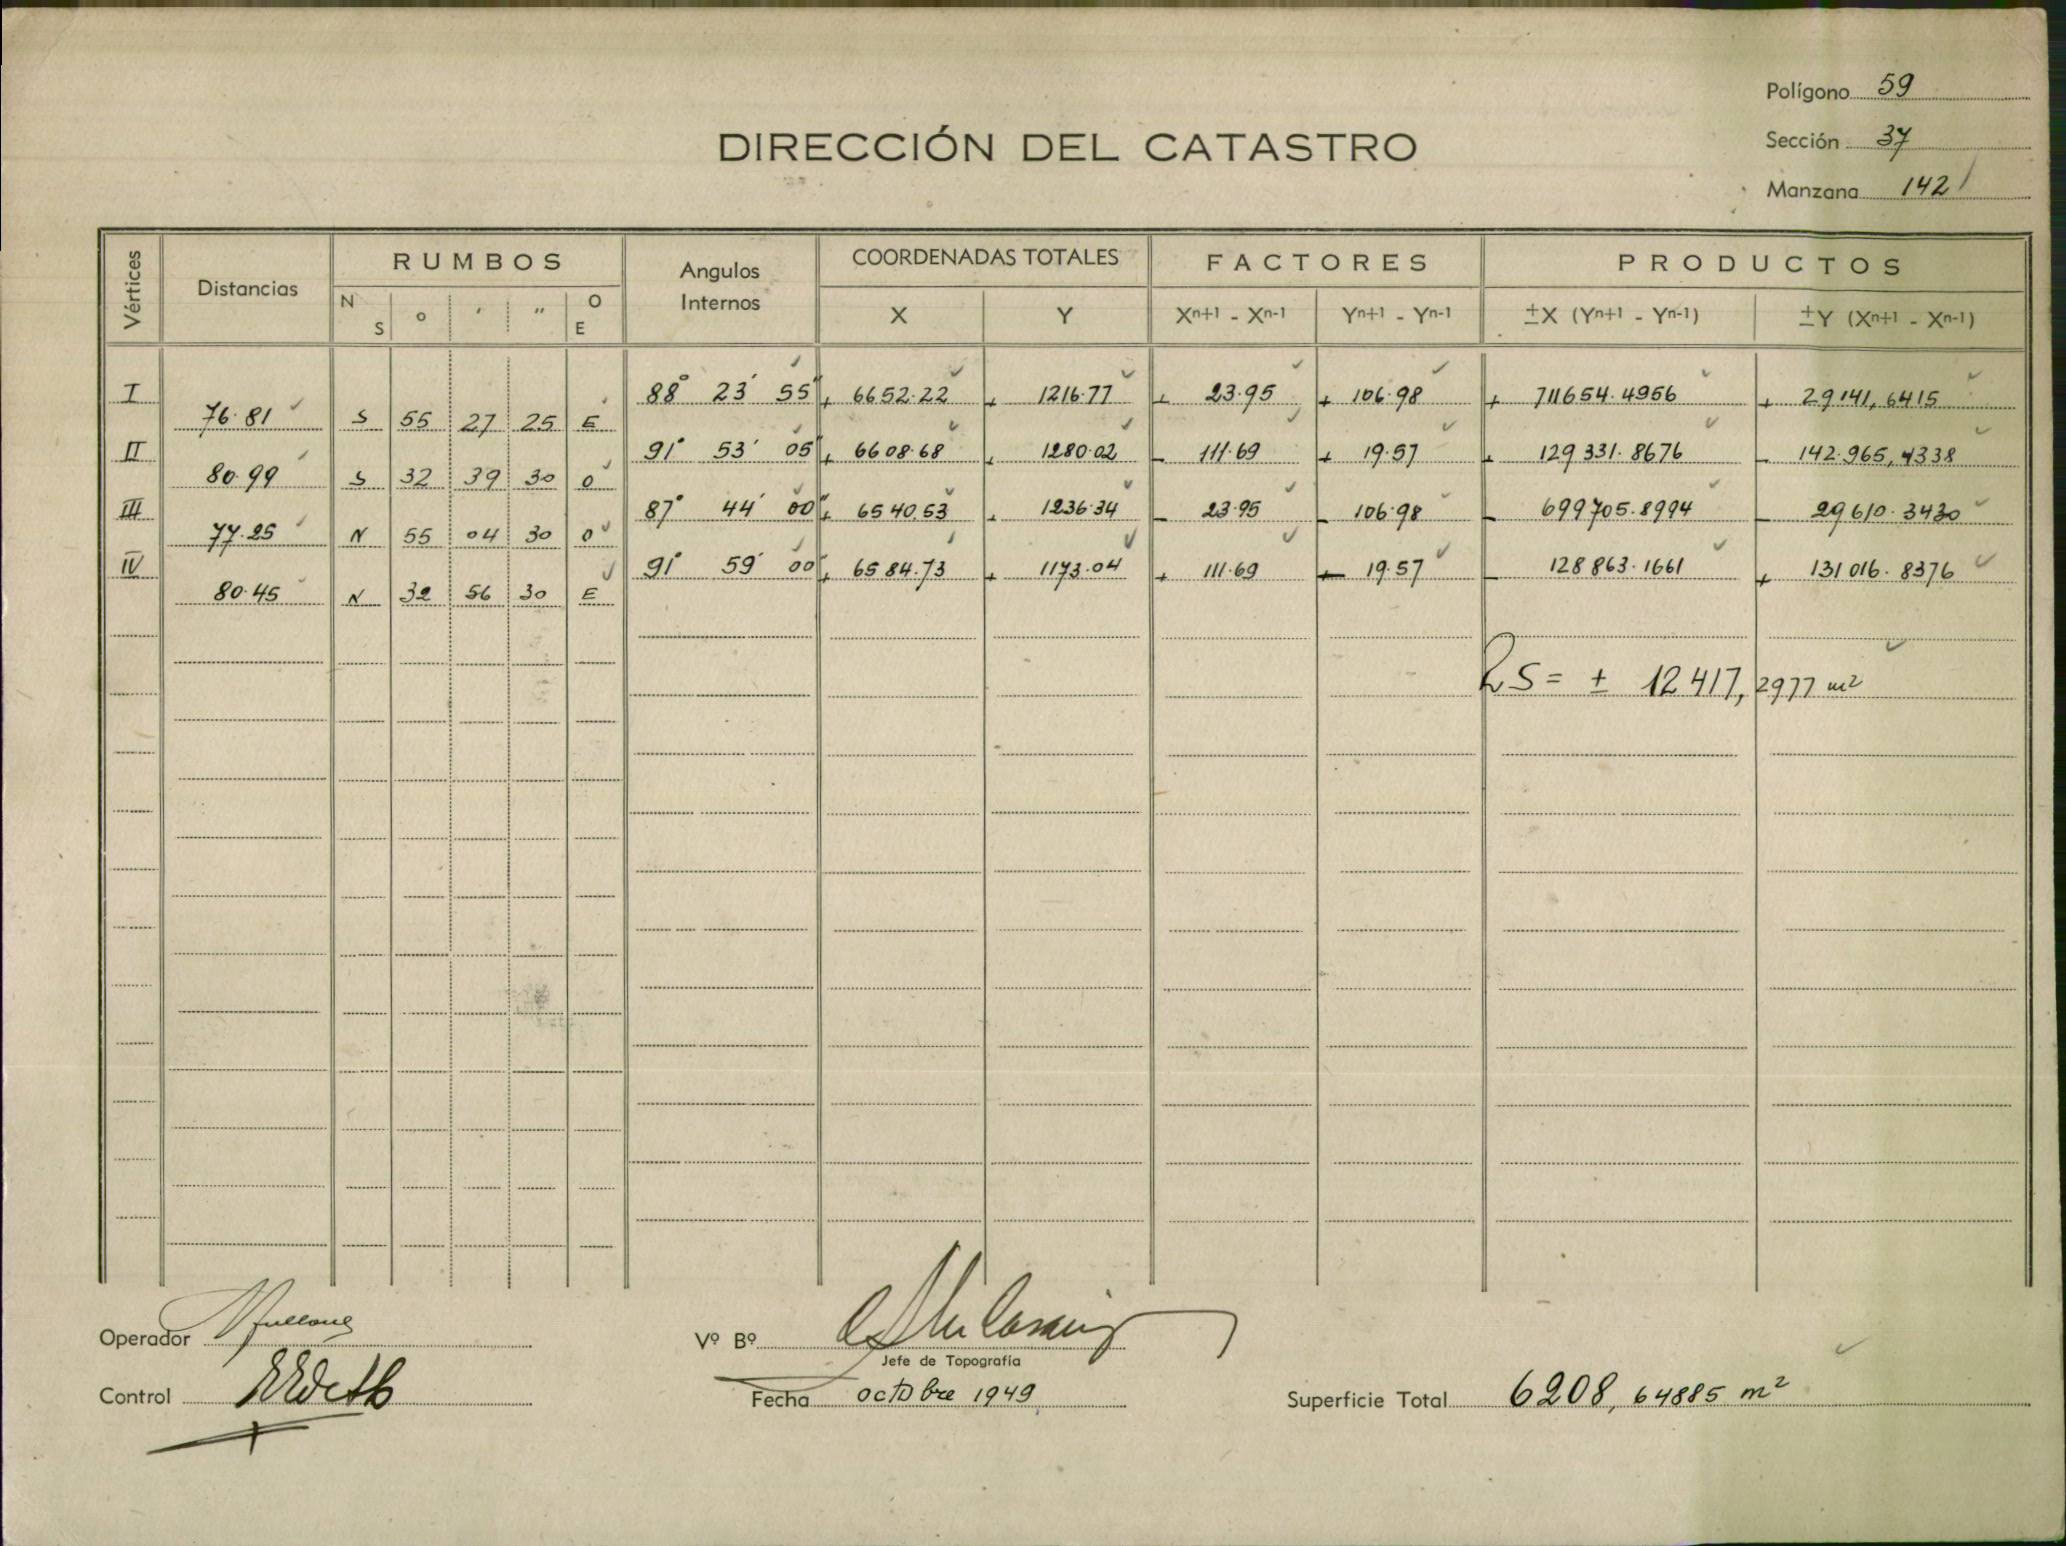 Polígono 59
DIRECCIÓN DEL CATASTRO
Sección 37
Manzana 142
Vértices Distancias RUMBOS Angulos Internos COORDENADAS TOTALES FACTORES PRODUCTOS
N S ° ′ ″ O E X Y Xⁿ⁺¹ - Xⁿ⁻¹ Yⁿ⁺¹ - Yⁿ⁻¹ ±X (Yⁿ⁺¹ - Yⁿ⁻¹) ±Y (Xⁿ⁺¹ - Xⁿ⁻¹)
I 88° 23′ 55″ + 6652.22 + 1216.77 + 23.95 + 106.98 + 711654.4956 + 29141,6415
76.81 S 55 27 25 E
II 91° 53′ 05″ + 6608.68 + 1280.02 - 111.69 + 19.57 + 129331.8676 - 142.965,4338
80.99 S 32 39 30 O
III 87° 44′ 00″ + 6540.53 + 1236.34 - 23.95 - 106.98 - 699705.8994 - 29610.3430
77.25 N 55 04 30 O
IV 91° 59′ 00″ + 6584.73 + 1173.04 + 111.69 - 19.57 - 128863.1661 + 131016.8376
80.45 N 32 56 30 E
2S = ± 12417,2977 m²
Operador
Vº Bº
Jefe de Topografía
Control
Fecha octobre 1949
Superficie Total 6208,64885 m²